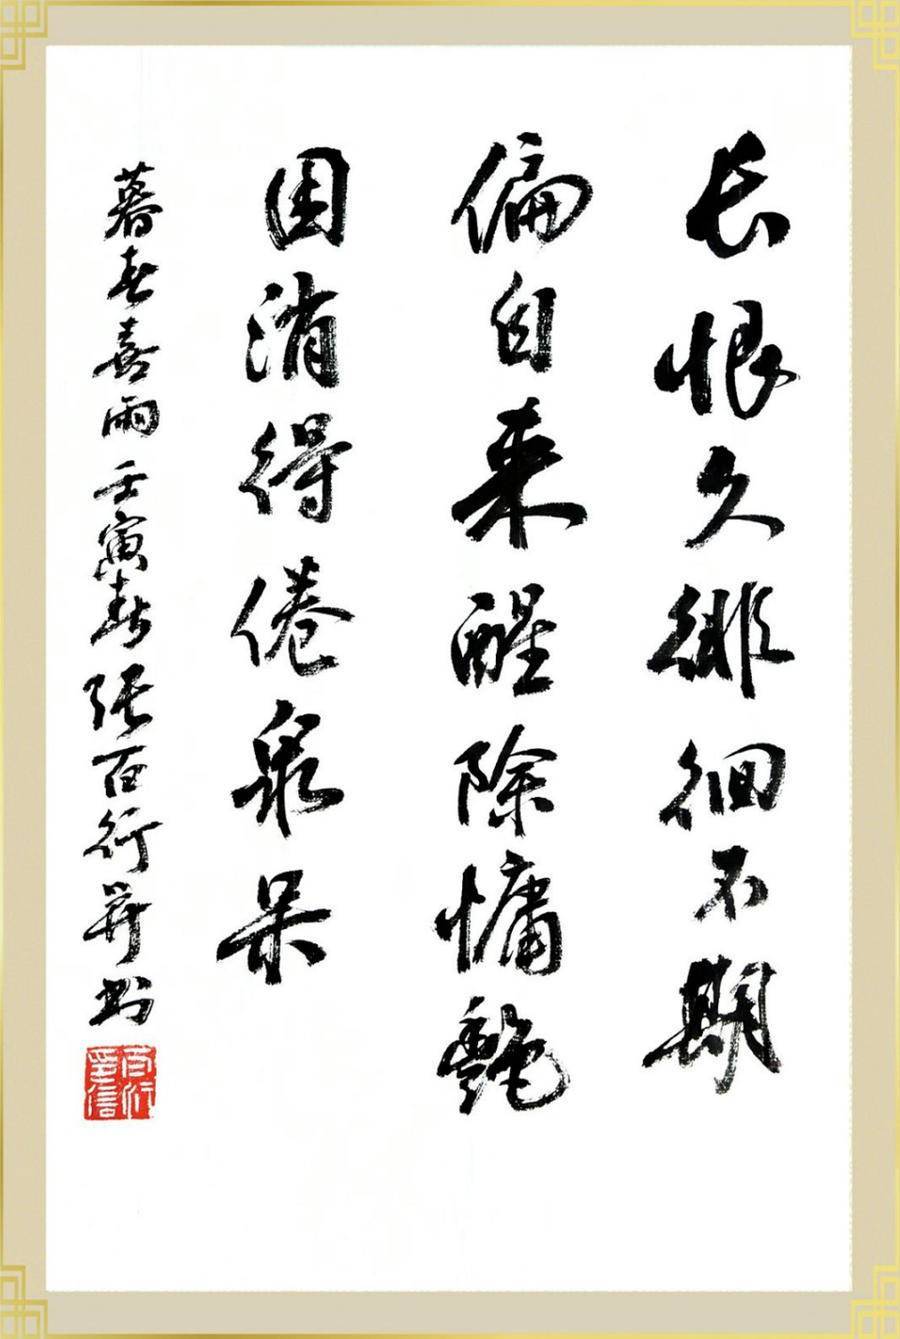 长恨久徘徊不期
偏自来醒除慵艷
困消得倦泉呆
暮春喜雨壬寅春张百行并书
百行印信